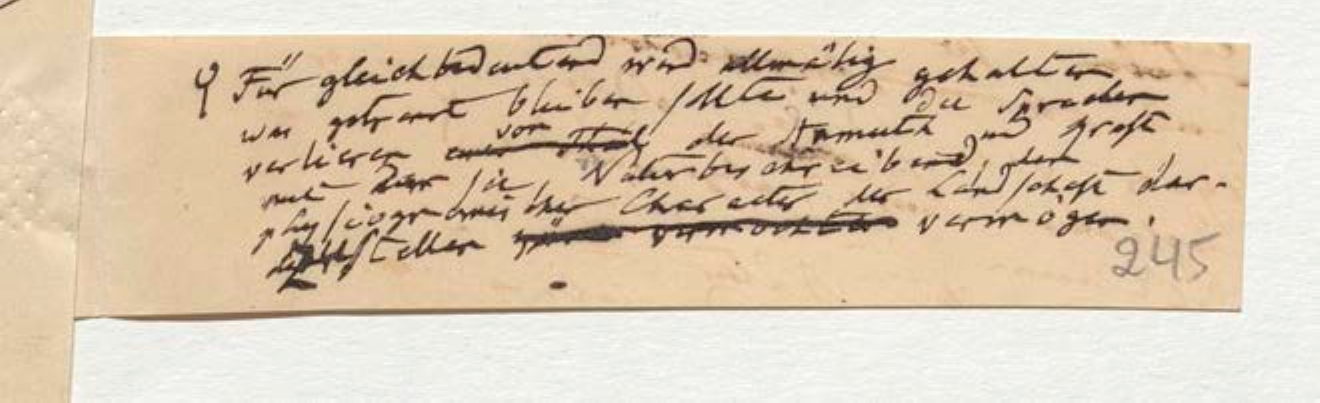 Für gleichbedeutend wird allmälig gehalten,
was getrennt bleiben sollte und die Sprachen
verlieren von der Anmuth und Kraft
mit der sie Naturbeschreibend, den
physiognomischen Character der Landschaft dar-
stellen vermögen.
245